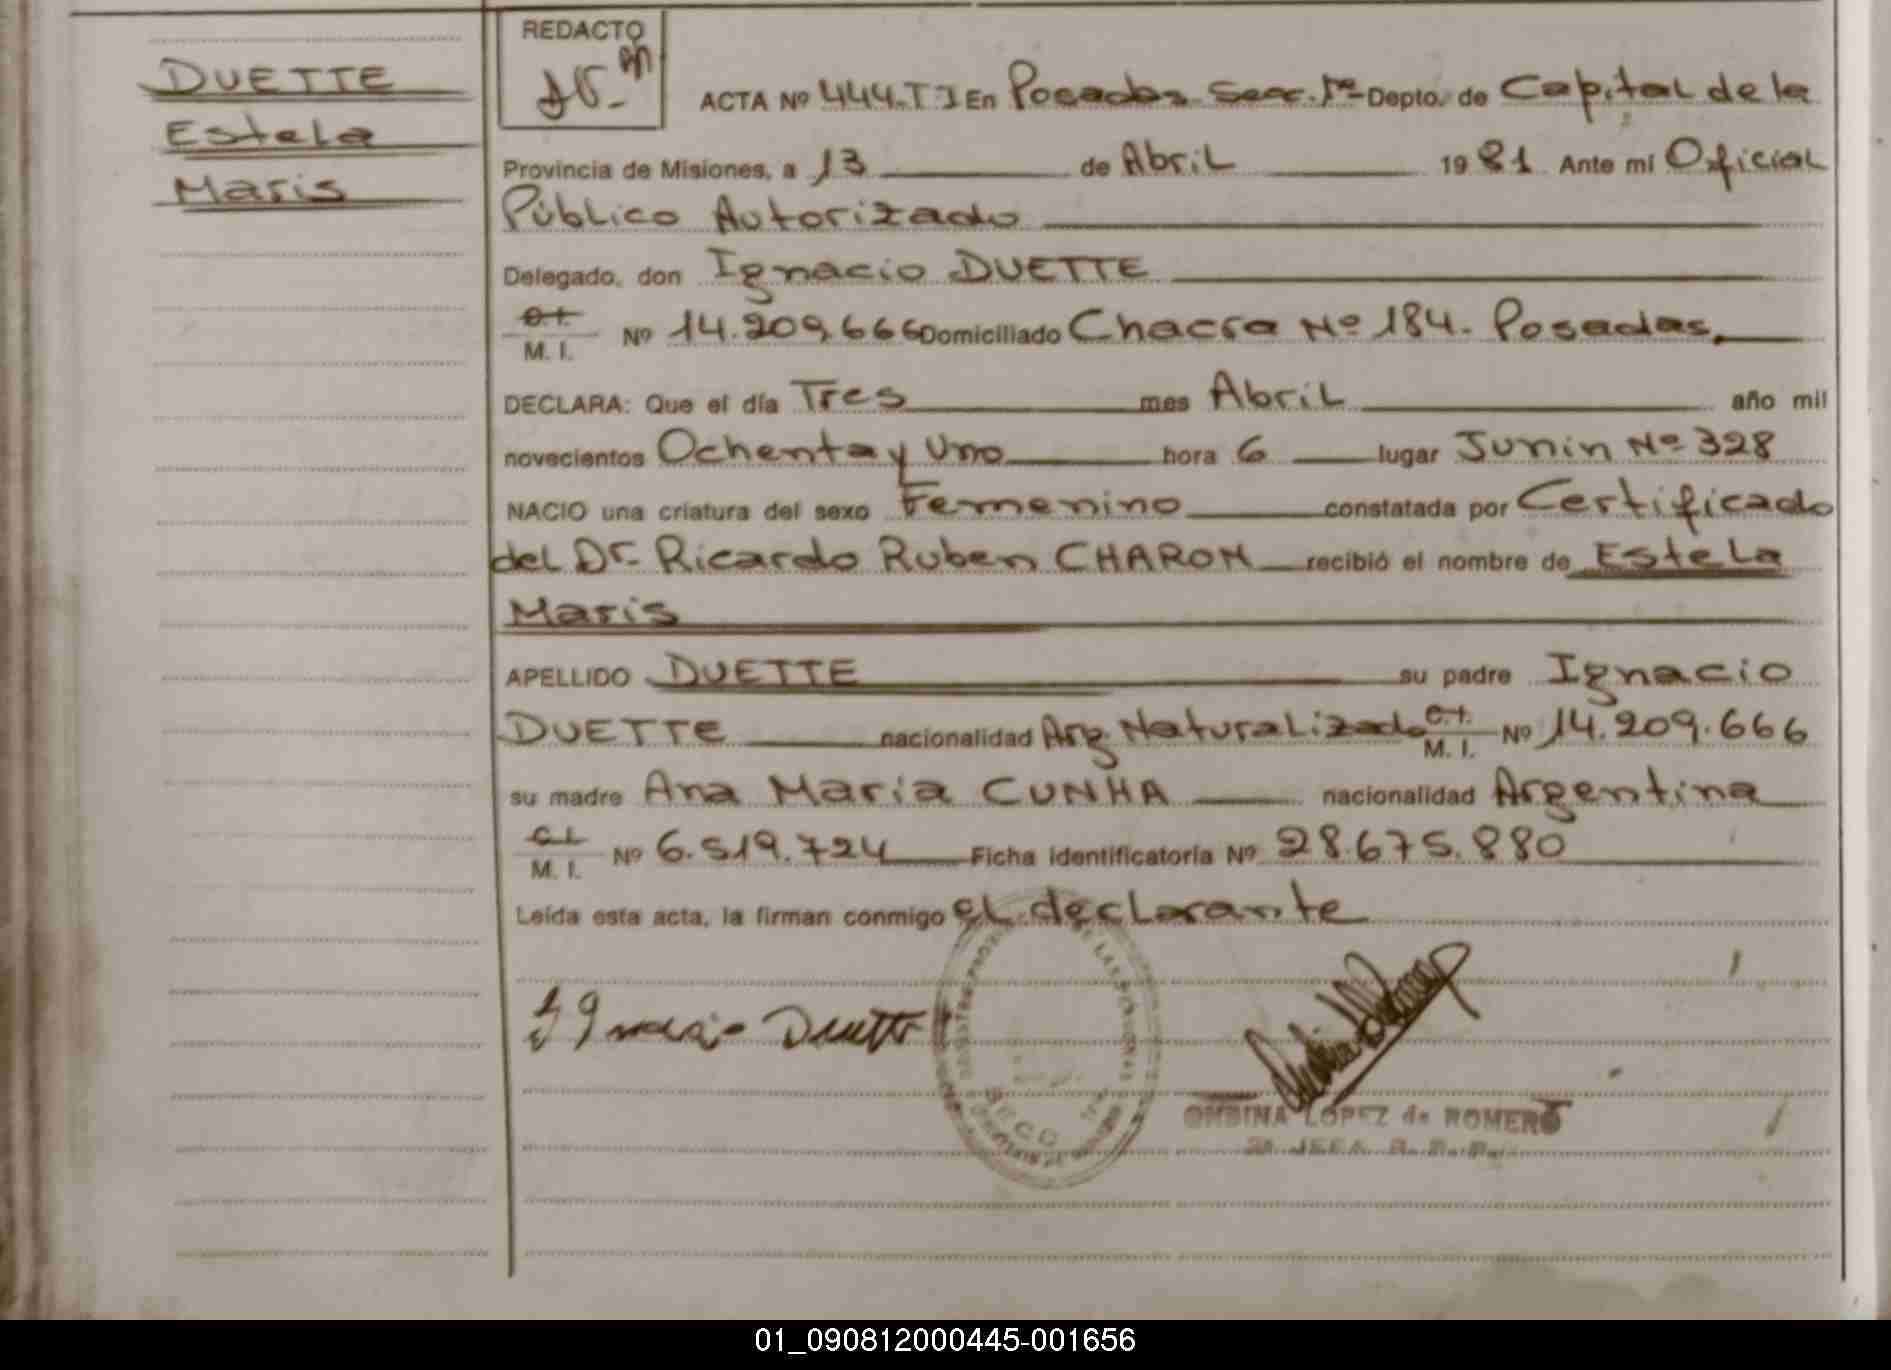 DUETTE
Estela
Maris
REDACTO
ACTA Nº 444. T I En Posadas Secc. 1ª Depto. de Capital de la
Provincia de Misiones, a 13 de Abril 1981 Ante mí Oficial
Público Autorizado
Delegado, don Ignacio DUETTE
C.I.
M. I. Nº 14.209.666 Domiciliado Chacra Nº 184. Posadas.
DECLARA: Que el día Tres mes Abril año mil
novecientos Ochenta y Uno hora 6 lugar Junin Nº 328
NACIO una criatura del sexo Femenino constatada por Certificado
del Dr. Ricardo Ruben CHARON recibió el nombre de Estela
Maris
APELLIDO DUETTE su padre Ignacio
DUETTE nacionalidad Arg. Naturalizado C.I. M. I. Nº 14.209.666
su madre Ana Maria CUNHA nacionalidad Argentina
C.I.
M. I. Nº 6.519.724 Ficha identificatoria Nº 28.675.880
Leída esta acta, la firman conmigo el declarante
Ignacio Duette
LOPEZ de ROMERO
01_090812000445-001656